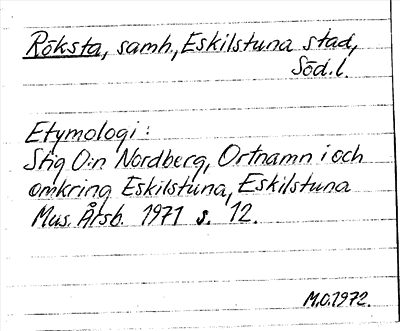 Röksta, samh., Eskilstuna stad,
Söd.l.
Etymologi:
Stig O:n Nordberg, Ortnamn i och
omkring Eskilstuna, Eskilstuna
Mus. Årsb. 1971 s. 12.
M.O.1972.